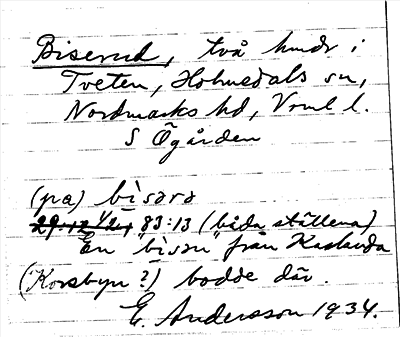 Biserud, två hmdr i
Tveten, Holmedals sn,
Nordmarks hd, Vrml l.
S Ögården
(pa) bisərə
83:13 (båda ställena)
En "bisən" från Kaslanda
(Korsbyn?) bodde där.
E. Andersson 1934.